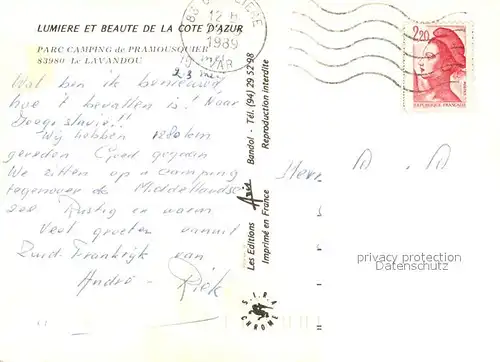 LUMIERE ET BEAUTE DE LA COTE D'AZUR
PARC CAMPING de PRAMOUSQUIER
83980 Le LAVANDOU
12 H
1989
VAR
23 mei
Wat ben ik benieuwd
hoe 't bevallen is! Naar
Joegoslavië!!
Wij hebben 1280 km
gereden Goed gegaan
We zitten op 'n camping
tegenover de Middellandse
zee Rustig en warm
Veel groeten vanuit
Zuid-Frankrijk van
André - Riek
Les Editions Aris Bandol - Tél. (94) 29 52 98
Imprimé en France Reproduction interdite
SIRA
CHROME
2,20
REPUBLIQUE FRANÇAISE
privacy protection
Datenschutz